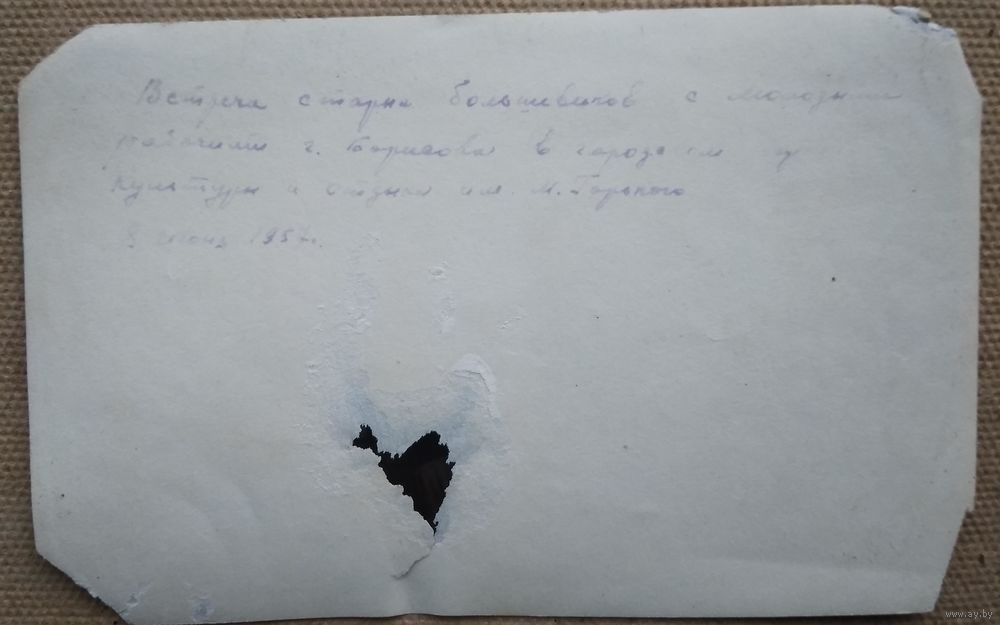 Встреча старых большевиков с молодыми
рабочими г. Борисова в городском
культуры и отдыха им. М. Горького
9 июня 1957г.
www.ay.by